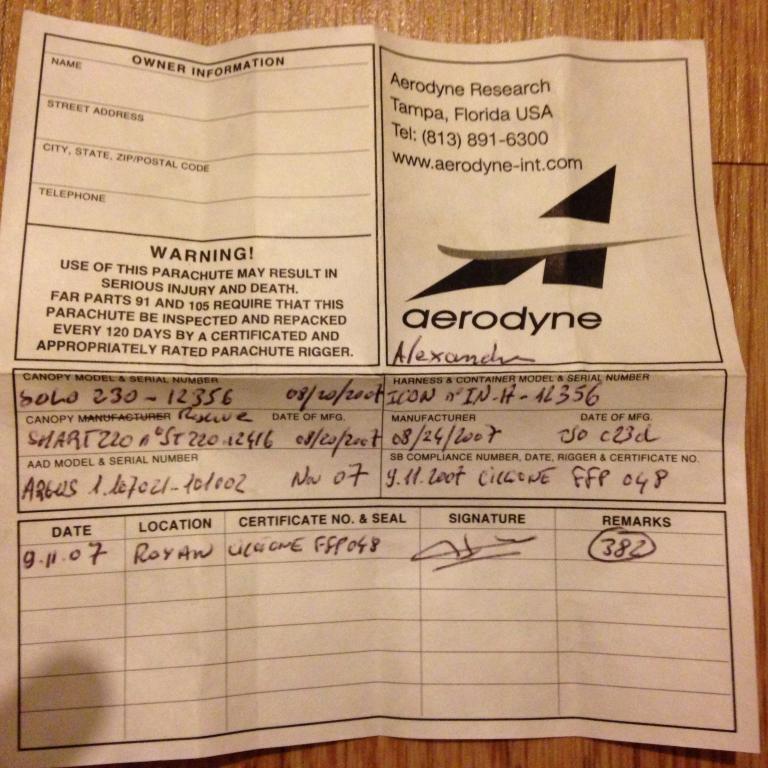 OWNER INFORMATION
NAME
STREET ADDRESS
CITY, STATE, ZIP/POSTAL CODE
TELEPHONE
WARNING!
USE OF THIS PARACHUTE MAY RESULT IN
SERIOUS INJURY AND DEATH.
FAR PARTS 91 AND 105 REQUIRE THAT THIS
PARACHUTE BE INSPECTED AND REPACKED
EVERY 120 DAYS BY A CERTIFICATED AND
APPROPRIATELY RATED PARACHUTE RIGGER.
Aerodyne Research
Tampa, Florida USA
Tel: (813) 891-6300
www.aerodyne-int.com
aerodyne
Alexandre
CANOPY MODEL & SERIAL NUMBER
SOLO 230 - 12356 08/20/2007
CANOPY MANUFACTURER Reserve DATE OF MFG.
SMART220 n° ST220-12416 08/20/2007
AAD MODEL & SERIAL NUMBER
ARGUS 1.107021-101002 Nov 07
HARNESS & CONTAINER MODEL & SERIAL NUMBER
ICON n° IN-H-12356
MANUFACTURER DATE OF MFG.
08/24/2007 TSO c23d
SB COMPLIANCE NUMBER, DATE, RIGGER & CERTIFICATE NO.
9.11.2007 FFP 048
DATE LOCATION CERTIFICATE NO. & SEAL SIGNATURE REMARKS
9.11.07 ROYAN FFP048 382